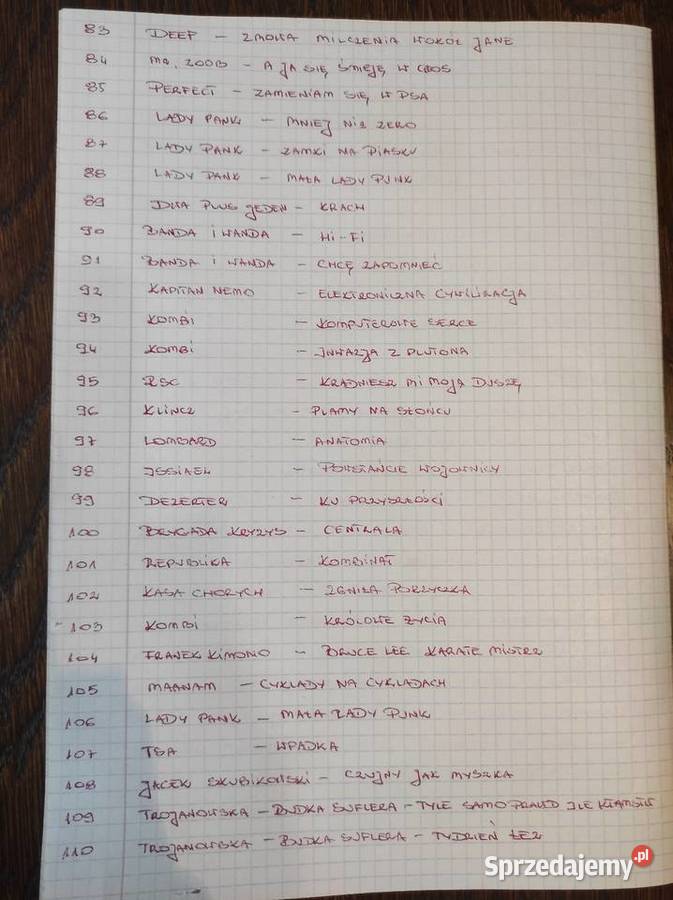 83 DEEP - ZMOWA MILCZENIA WOKÓŁ JANE
84 MR. ZOOB - A JA SIĘ ŚMIEJĘ W GŁOS
85 PERFECT - ZAMIENIAM SIĘ W PSA
86 LADY PANK - MNIEJ NIŻ ZERO
87 LADY PANK - ZAMKI NA PIASKU
88 LADY PANK - MAŁA LADY PUNK
89 DWA PLUS JEDEN - KRACH
90 BANDA I WANDA - HI-FI
91 BANDA I WANDA - CHCĘ ZAPOMNIEĆ
92 KAPITAN NEMO - ELEKTRONICZNA CYWILIZACJA
93 KOMBI - KOMPUTEROWE SERCE
94 KOMBI - INWAZJA Z PLUTONA
95 RSC - KRADNIESZ MI MOJĄ DUSZĘ
96 KLINCZ - PLAMY NA SŁOŃCU
97 LOMBARD - ANATOMIA
98 ISSIAEL - POWSTAŃCIE WOJOWNICY
99 DEZERTER - KU PRZYSZŁOŚCI
100 BRYGADA KRYZYS - CENTRALA
101 REPUBLIKA - KOMBINAT
102 KASA CHORYCH - ZGNIŁA PORZYCZKA
103 KOMBI - KRÓLOWE ŻYCIA
104 FRANEK KIMONO - BRUCE LEE KARATE MISTRZ
105 MAANAM - CYKLADY NA CYKLADACH
106 LADY PANK - MAŁA LADY PUNK
107 TSA - WPADKA
108 JACEK SKUBIKOWSKI - CZUJNY JAK MYSZKA
109 TROJANOWSKA - BUDKA SUFLERA - TYLE SAMO PRAWD ILE KŁAMSTW
110 TROJANOWSKA - BUDKA SUFLERA - TYDZIEŃ ŁEZ
Sprzedajemy.pl